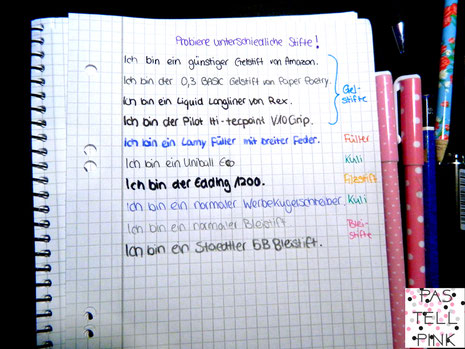 Probiere unterschiedliche Stifte!
Ich bin ein günstiger Gelstift von Amazon.
Ich bin der 0,3 BASIC Gelstift von Paper Poetry.
Ich bin ein Liquid Longliner von Rex.
Ich bin der Pilot Hi-tecpoint V10 Grip.
Gel-
stifte
Ich bin ein Lamy Füller mit breiter Feder. Füller
Ich bin ein Uniball Kuli
Ich bin der Edding 1200. Filzstift
Ich bin ein normaler Werbekugelschreiber. Kuli
Ich bin ein normaler Bleistift
Ich bin ein Staedtler 6B Bleistift.
Blei-
stifte
PAS
TELL
PINK